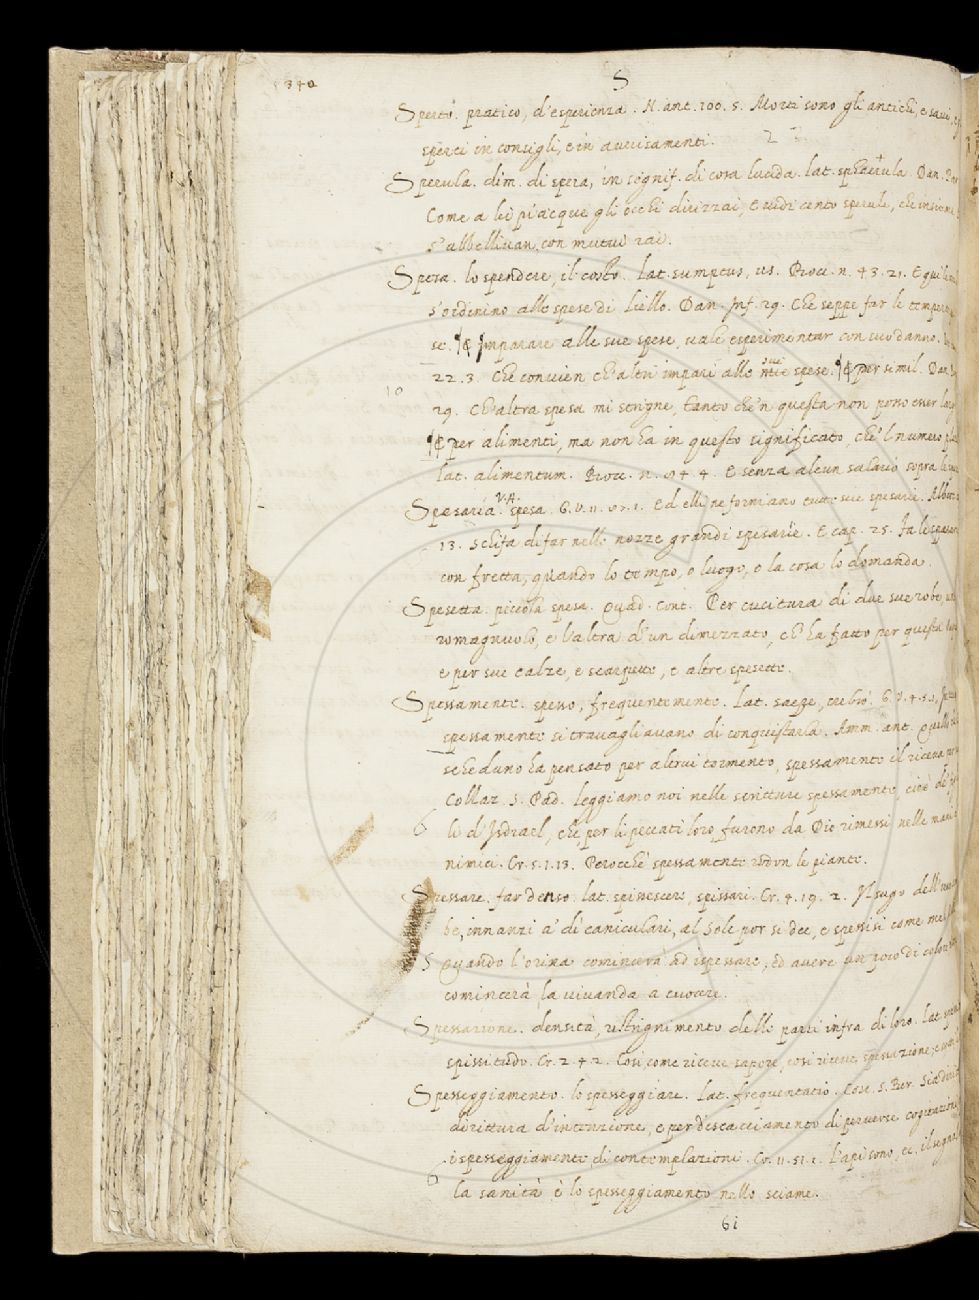 340
S
Sperto. pratico, d'esperienza. N. ant. 100. 5. Molti sono gli antichi, e savi, e
sperti in consigli, e in avvisamenti.
2
Sperula. dim. di spera, in signif. di cosa lucida. lat. sphaerula. Dan.
Come a lei piacque gli occhi dirizzai, E vidi cento sperule, che insieme
s'abbellivan, con mutui rai.
Spesa. lo spendere, il costo. Lat. sumptus, us. Bocc. n. 43. 21. E qui
s'ordinino alle spese di Liello. Dan. Inf. 29. Che seppe far le temperate
se. ¶ Imparare alle sue spese, vale esperimentar con suo danno.
22. 3. Che convien ch'altri impari alle sue spese. ¶ per simil. Dan.
10
29. Ch'altra spesa mi strigne, tanto che'n questa non posso esser largo
¶ per alimenti, ma non ha in questo significato, che'l numero
lat. alimentum. Bocc. n. 4. E senza alcun salario sopra le
Spesaria. V. A. spesa. G. V. 11. Ed elli ne forniano tutte sue spesarie. Alber.
13. Schifa di far nelle nozze grandi spesarie. E cap. 25. Fa le spesarie
con fretta, quando lo tempo, o luogo, o la cosa lo domanda.
Spesetta. piccola spesa. Quad. Cont. Per cucitura di due sue robe, un
romagnuolo, e l'altra d'un dimezzato, ch'ha fatto per questa
e per sue calze, e scarpette, e altre spesette.
Spessamente. spesso, frequentemente. Lat. saepe, crebro. G. V. 4.
spessamente si travagliavano di conquistarla. Amm. ant. Quello
scheduno ha pensato per altrui tormento, spessamente il riceva
Collaz. S. Pad. leggiamo noi nelle scritture spessamente, cioè de'
6
li d'Isdrael, che per li peccati loro furono da Dio rimessi nelle mani
nimici. Cr. 5. 1. 13. Perocchè spessamente rodon le piante.
Spessare. far denso. lat. spissescere, spissari. Cr. 4. 19. 2. Il sugo dell'
be, innanzi a' dì caniculari, al Sole por si dee, e spessisi come mel
5
Quando l'orina comincerà ad ispessare, ed avere un poco di colore
comincerà la vivanda a cuocere.
Spessazione. densità, ristrignimento delle parti infra di loro. Lat.
spissitudo. Cr. 2. 4. 2. Così come riceve sapore, così riceve spessazione, e
Spesseggiamento. lo spesseggiare. Lat. frequentatio. Coll. S. Ber. Sia
dirittura d'intenzione, e per discacciamento di perverse cogitazioni
ispesseggiamento di contemplazioni. Cr. 11. 51. 1. L'api sono, ec. il segno
6
la sanità è lo spesseggiamento nello sciame.
61